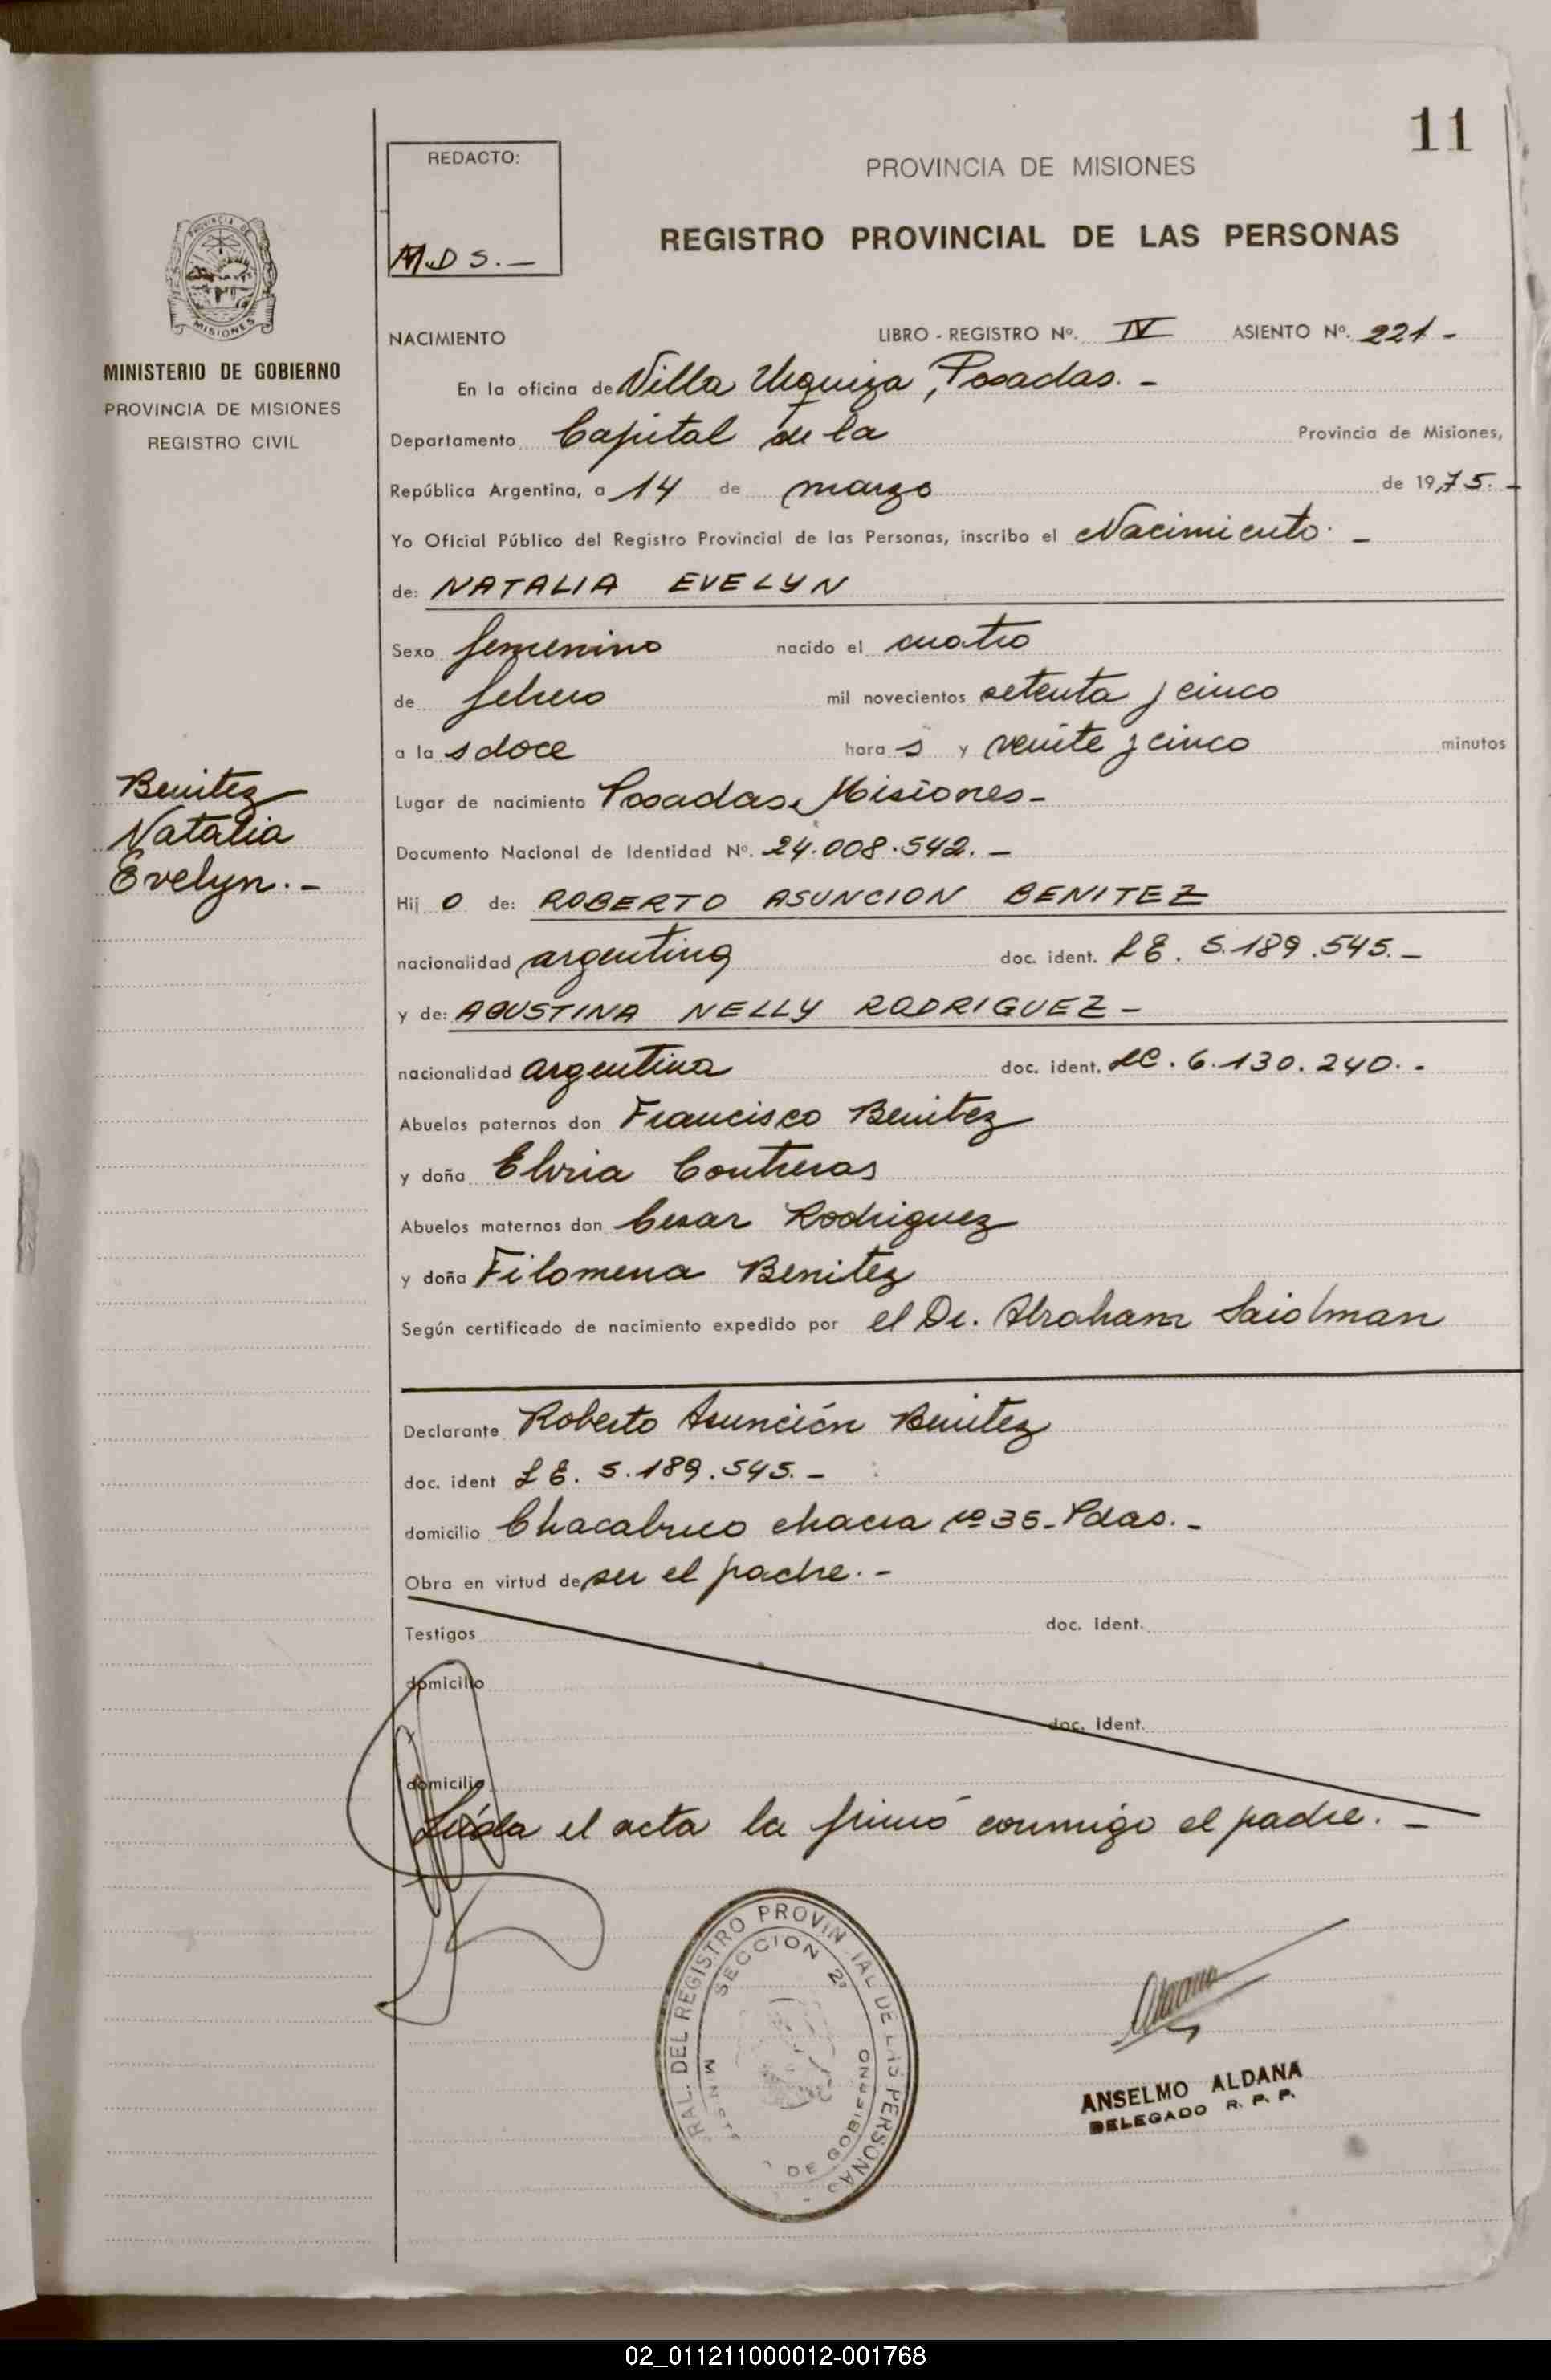 11
REDACTO:
M.D S. —
PROVINCIA DE MISIONES
REGISTRO PROVINCIAL DE LAS PERSONAS
PROVINCIA DE
MISIONES
MINISTERIO DE GOBIERNO
PROVINCIA DE MISIONES
REGISTRO CIVIL
NACIMIENTO LIBRO - REGISTRO Nº. IV ASIENTO Nº. 221 -
En la oficina de Villa Urquiza, Posadas. -
Departamento Capital de la Provincia de Misiones,
República Argentina, a 14 de marzo de 1975. -
Yo Oficial Público del Registro Provincial de las Personas, inscribo el Nacimiento. -
de: NATALIA EVELYN
Sexo femenino nacido el cuatro
de febrero mil novecientos setenta y cinco
a la s doce hora s y veinte y cinco minutos
Benitez
Natalia
Evelyn. -
Lugar de nacimiento Posadas, Misiones -
Documento Nacional de Identidad Nº. 24.008.542. —
Hij o de: ROBERTO ASUNCION BENITEZ
nacionalidad argentina doc. ident. LE. 5.189.545. -
y de: AGUSTINA NELLY RODRIGUEZ -
nacionalidad argentina doc. ident. LC. 6.130.240. -
Abuelos paternos don Francisco Benitez
y doña Elvia Contreras
Abuelos maternos don Cesar Rodriguez
y doña Filomena Benitez
Según certificado de nacimiento expedido por el Dr. Abraham
Declarante Roberto Asunción Benitez
doc. ident LE. 5.189.545. -
domicilio Chacabuco chacra nº 35 - Pdas. -
Obra en virtud de ser el padre. -
Testigos doc. ident.
domicilio
doc. ident.
domicilio
Leída el acta la firmó conmigo el padre. -
RAL. DEL REGISTRO PROVIN IAL DE LAS PERSONAS
SECCION 2ª
DE GOBIERNO
ANSELMO ALDANA
DELEGADO R. P. P.
02_011211000012-001768